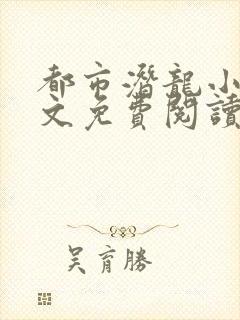 都市潛龍小
文免費閱讀
吴育勝